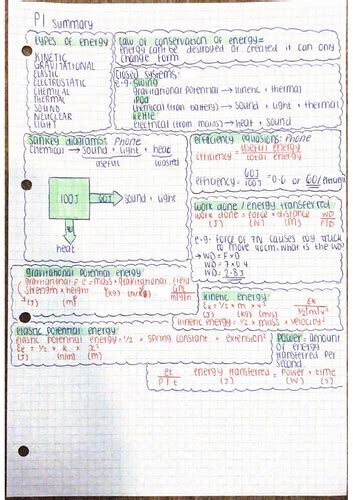 P1 summary
types of energy
KINETIC
GRAVITATIONAL
ELASTIC
ELECTROSTATIC
CHEMICAL
THERMAL
SOUND
NUCLEAR
LIGHT
law of conservation of energy=
energy can't be destroyed or created it can only
change form
Closed systems:
e.g. swing
gravitational potential → kinetic + thermal
iPod
chemical (from battery) → sound + light + thermal
kettle
electrical (from mains) → heat + sound
Sankey diagrams: Phone
chemical → sound + light + heat
useful wasted
100J 60J sound + light
heat
efficiency equations: Phone
efficiency = useful energy
total energy
efficiency = 60J = 0.6 or 60%
100J
work done / energy transferred
work done = force × distance WD
(J) (N) (m) F|D
e.g. force of 7N causes toy truck
to move 40cm. what is the WD?
→ WD = F × D
WD = 7 × 0.4
WD = 2.8J
gravitational potential energy
gravitational P.E = mass × gravitational field
strength × height
(J) (m) (kg)
kinetic energy
Ek = ½ × m × v²
(J) (kg) (m/s)
kinetic energy = ½ × mass × velocity²
elastic potential energy
elastic potential energy = ½ × spring constant × extension²
Ee = ½ × k × x²
(J) (N/m) (m)
power = amount
of energy
transferred per
second.
energy transferred = power × time
(J) (W) (s)